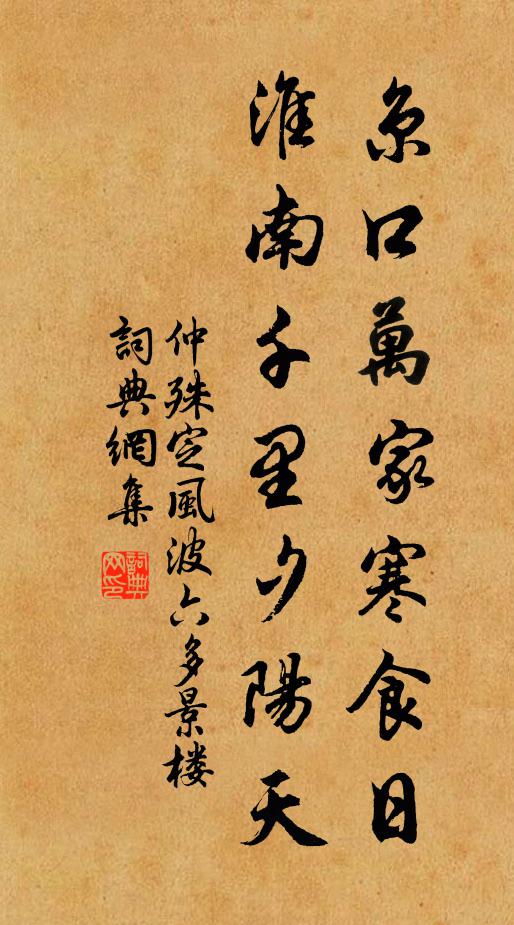 京口萬家寒食日
淮南千里夕陽天
仲殊定風波六多景楼
詞典網集
詞典
网印